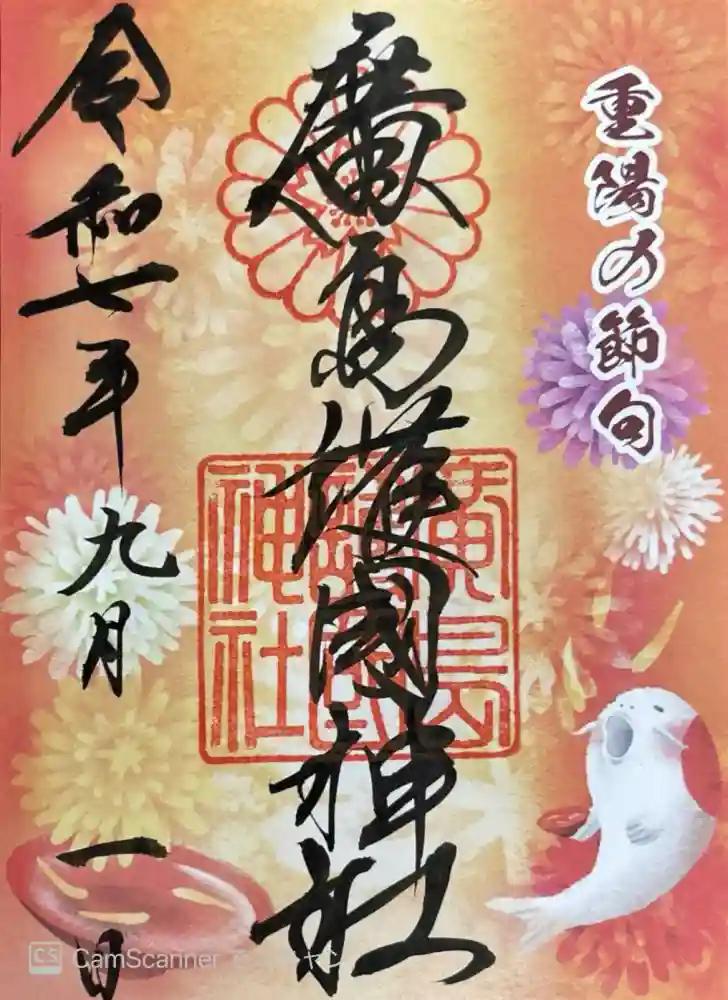 重陽の節句
廣島護國神社
廣島護國神社
令和七年九月一日
CS CamScanner